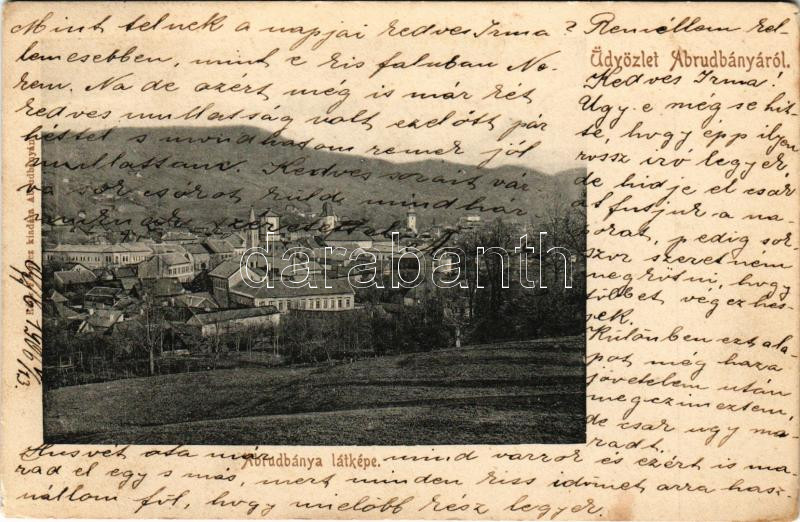 Mint telnek a napjai kedves Irma? Remélem kel-
lemesebben, mint e kis faluban Ne-
kem. Na de azért még is már két
kedves mullatság volt ezelőtt pár
héttel s mondhatom remek jól
mullattam. Kedves sorait vár-
va sok csókot küld mindhár
szeretettel
Üdvözlet Abrudbányáról.
Kedves Irma!
Ugy-e még se hit-
te, hogy épp ilyen
rossz iró legyek,
de hidje el csak
át futjuk a na-
pokat, pedig sok-
szor szeretném
megkötni, hogy
többet végezhes-
sek.
Különben ezt ala-
pot még haza
jövetelem után
megczimeztem,
de csak ugy ma-
radt.
Husvét óta már mind varrok és ezért is ma
rad el egy s más, mert minden kiss időmet arra hasz-
nállom föl, hogy mielőbb kész legyek.
Abrudbánya látképe.
kiadása Abrudbányán
1906 V/13.
darabanth